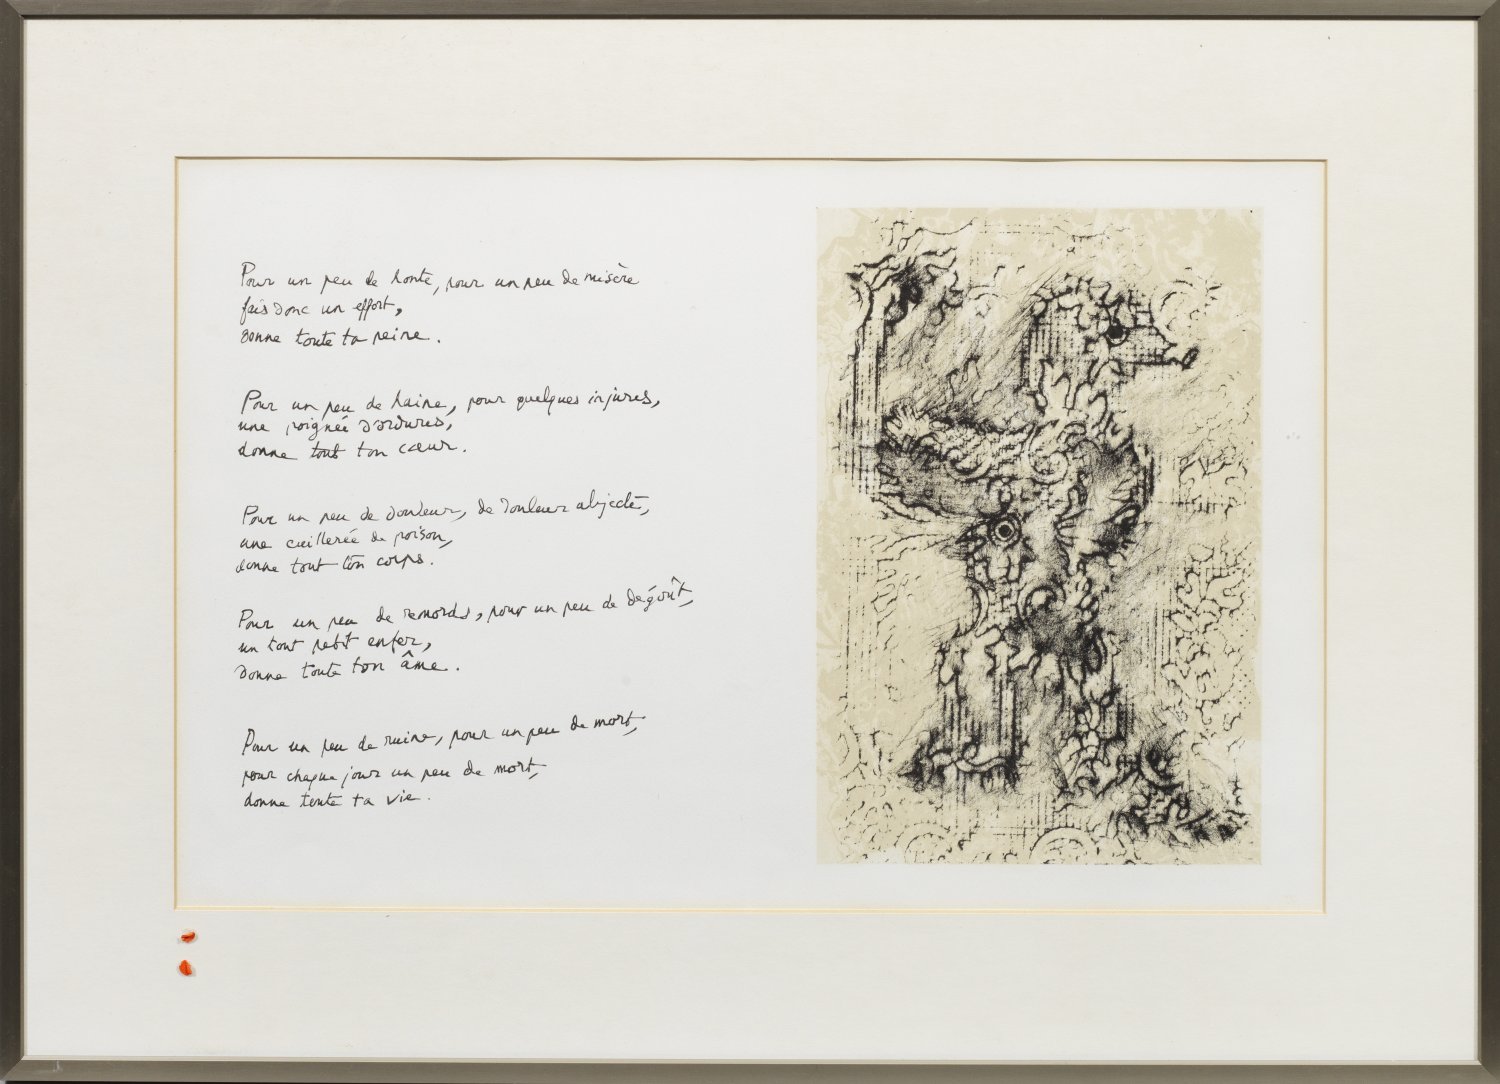 Pour un peu de honte, pour un peu de misère
fais donc un effort,
donne toute ta peine.
Pour un peu de haine, pour quelques injures,
une poignée d'ordures,
donne tout ton cœur.
Pour un peu de douleur, de douleur abjecte,
une cuillerée de poison,
donne tout ton corps.
Pour un peu de remords, pour un peu de dégoût,
un tout petit enfer,
donne toute ton âme.
Pour un peu de ruine, pour un peu de mort,
pour chaque jour un peu de mort,
donne toute ta vie.